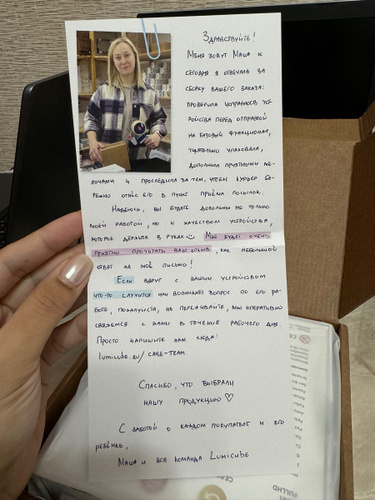 Здравствуйте!
Меня зовут Маша и
сегодня я отвечала за
сборку вашего заказа:
проверила исправность ус-
ройства перед отправкой
на базовый функционал,
тщательно упаковала,
дополнила приятными ме-
лочами и проследила за тем, чтобы курьер бе-
режно отнёс его в пункт приёма посылок.
Надеюсь, вы будете довольны не только
моей работой, но и качеством устройства,
которое держите в руках Мне будет очень
приятно прочитать ваш отзыв, как небольшой
ответ на моё письмо!
Если вдруг с вашим устройством
что-то случится или возникнет вопрос по его ра-
боте, пожалуйста, не переживайте, мы оперативно
свяжемся с вами в течение рабочего дня.
Просто напишите нам сюда:
lumicube.su/care-team
Спасибо, что выбрали
нашу продукцию ♡
С заботой о каждом покупателе и его
ребёнке,
Маша и вся команда Lumicube